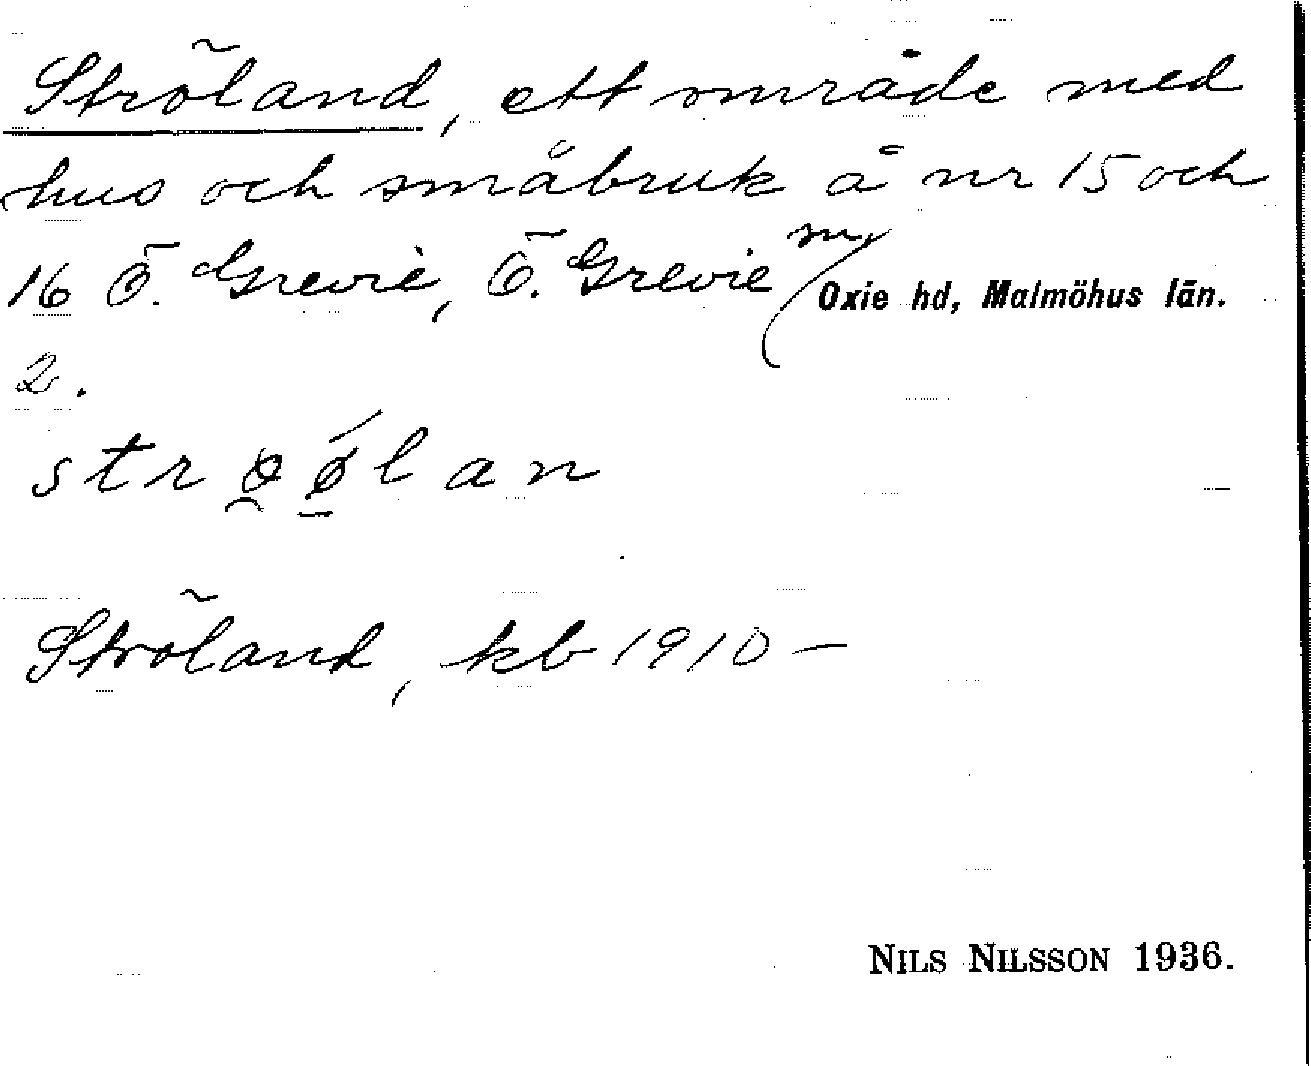 Ströland, ett område med
hus och småbruk å nr 15 och
16 Ö. Grevie, Ö. Grevie sn, Oxie hd, Malmöhus län.
2.
strø̯ǿ̠lan
Ströland, kb 1910–
NILS NILSSON 1936.